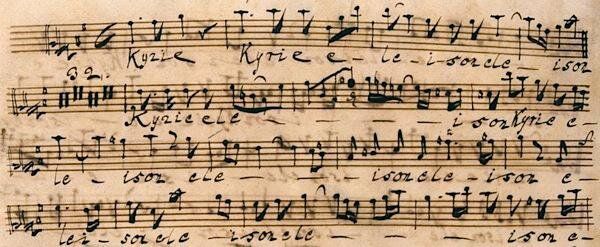 Kyrie Kyrie e - le - i - son ele - ison
32.
Kyrie ele - - - - - i son Kyrie e -
le - ison ele - - - - ison ele - ison e -
lei - son ele - ison ele - - - - - i son